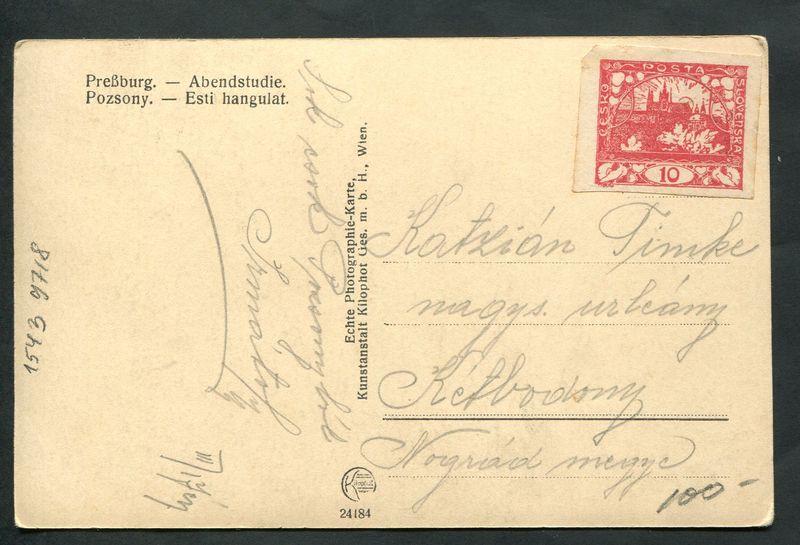 Preßburg. — Abendstudie.
Pozsony. — Esti hangulat.
POSTA
ČESKO
SLOVENSKÁ
10
Echte Photographie-Karte,
Kunstanstalt Kilophot Ges. m. b. H., Wien.
Katzián Timke
nagys. urleány
Kétbodony
Nográd megye
100-
1543 9718
24184